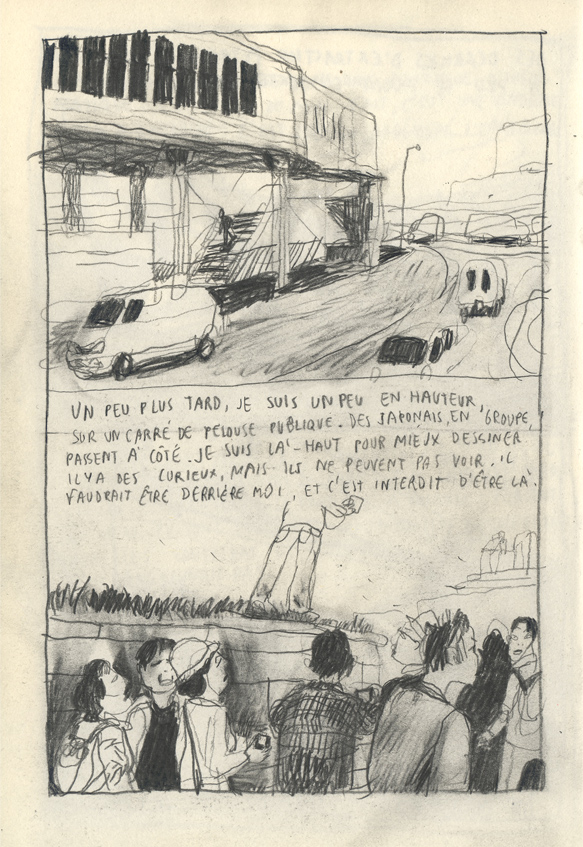 UN PEU PLUS TARD, JE SUIS UN PEU EN HAUTEUR,
SUR UN CARRÉ DE PELOUSE PUBLIQUE. DES JAPONAIS, EN GROUPE,
PASSENT À CÔTÉ. JE SUIS LÀ-HAUT POUR MIEUX DESSINER
IL Y A DES CURIEUX, MAIS ILS NE PEUVENT PAS VOIR. IL
FAUDRAIT ÊTRE DERRIÈRE MOI, ET C'EST INTERDIT D'ÊTRE LÀ.